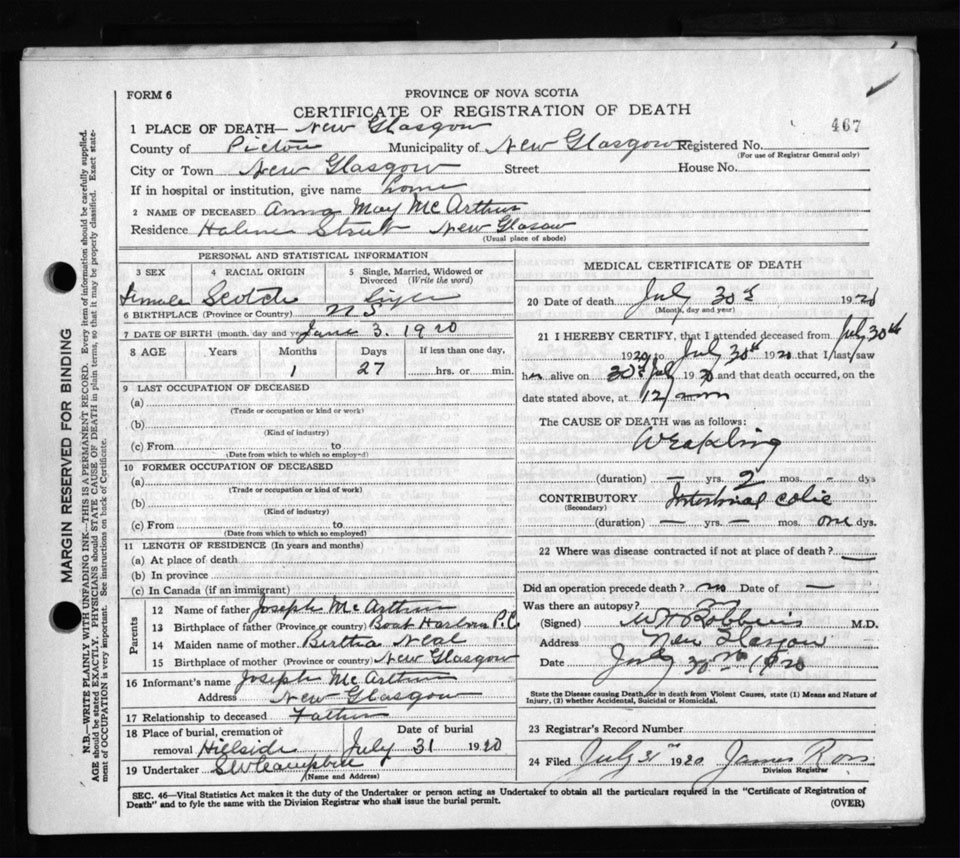 FORM 6
PROVINCE OF NOVA SCOTIA
CERTIFICATE OF REGISTRATION OF DEATH
467
1 PLACE OF DEATH— New Glasgow
County of Pictou Municipality of New Glasgow Registered No.
(For use of Registrar General only)
City or Town New Glasgow Street House No.
If in hospital or institution, give name home
2 NAME OF DECEASED Anna May McArthur
Residence Street New Glasgow
(Usual place of abode)
PERSONAL AND STATISTICAL INFORMATION
3 SEX 4 RACIAL ORIGIN 5 Single, Married, Widowed or Divorced (Write the word)
Female Scotch Single
6 BIRTHPLACE (Province or Country) N S
7 DATE OF BIRTH (month, day and year) 3. 1920
8 AGE Years Months Days If less than one day,
1 27 hrs. or min.
9 LAST OCCUPATION OF DECEASED
(a)
(Trade or occupation or kind or work)
(b)
(Kind of industry)
(c) From to
(Date from which to which so employed)
10 FORMER OCCUPATION OF DECEASED
(a)
(Trade or occupation or kind of work)
(b)
(Kind of industry)
(c) From to
(Date from which to which so employed)
11 LENGTH OF RESIDENCE (In years and months)
(a) At place of death
(b) In province
(c) In Canada (if an immigrant)
Parents
12 Name of father Joseph McArthur
13 Birthplace of father (Province or country) Boat Harbour P.C
14 Maiden name of mother Bertha Neal
15 Birthplace of mother (Province or country) New Glasgow
16 Informant's name Joseph McArthur
Address New Glasgow
17 Relationship to deceased Father
18 Place of burial, cremation or Date of burial
removal Hillside July 31 1920
19 Undertaker S W Campbell
(Name and Address)
MEDICAL CERTIFICATE OF DEATH
20 Date of death July 30th 1920
(Month, day and year)
21 I HEREBY CERTIFY, that I attended deceased from July 30th
1920 to July 30th 1920 that I last saw
her alive on 30th July 1920 and that death occurred, on the
date stated above, at 12 noon
The CAUSE OF DEATH was as follows:
Weakling
(duration) — yrs. 2 mos. – dys
CONTRIBUTORY Intestinal colic
(Secondary)
(duration) — yrs. — mos. one dys.
22 Where was disease contracted if not at place of death? —
Did an operation precede death? no Date of —
Was there an autopsy? no
(Signed) W H Robbins M.D.
Address New Glasgow
Date July 30th 1920
State the Disease causing Death, or in death from Violent Causes, state (1) Means and Nature of
Injury, (2) whether Accidental, Suicidal or Homicidal.
23 Registrar's Record Number
24 Filed July 31st 1920 James Ross
Division Registrar
SEC. 46—Vital Statistics Act makes it the duty of the Undertaker or person acting as Undertaker to obtain all the particulars required in the "Certificate of Registration of
Death" and to fyle the same with the Division Registrar who shall issue the burial permit.
(OVER)
MARGIN RESERVED FOR BINDING
N.B.—WRITE PLAINLY WITH UNFADING INK—THIS IS A PERMANENT RECORD. Every item of information should be carefully supplied.
AGE should be stated EXACTLY. PHYSICIANS should STATE CAUSE OF DEATH in plain terms, so that it may be properly classified. Exact state-
ment of OCCUPATION is very important. See instructions on back of Certificate.